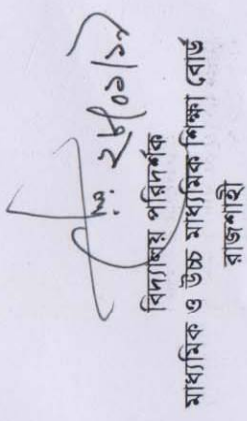 ২৮/০১/১৭
বিদ্যালয় পরিদর্শক
মাধ্যমিক ও উচ্চ মাধ্যমিক শিক্ষা বোর্ড
রাজশাহী